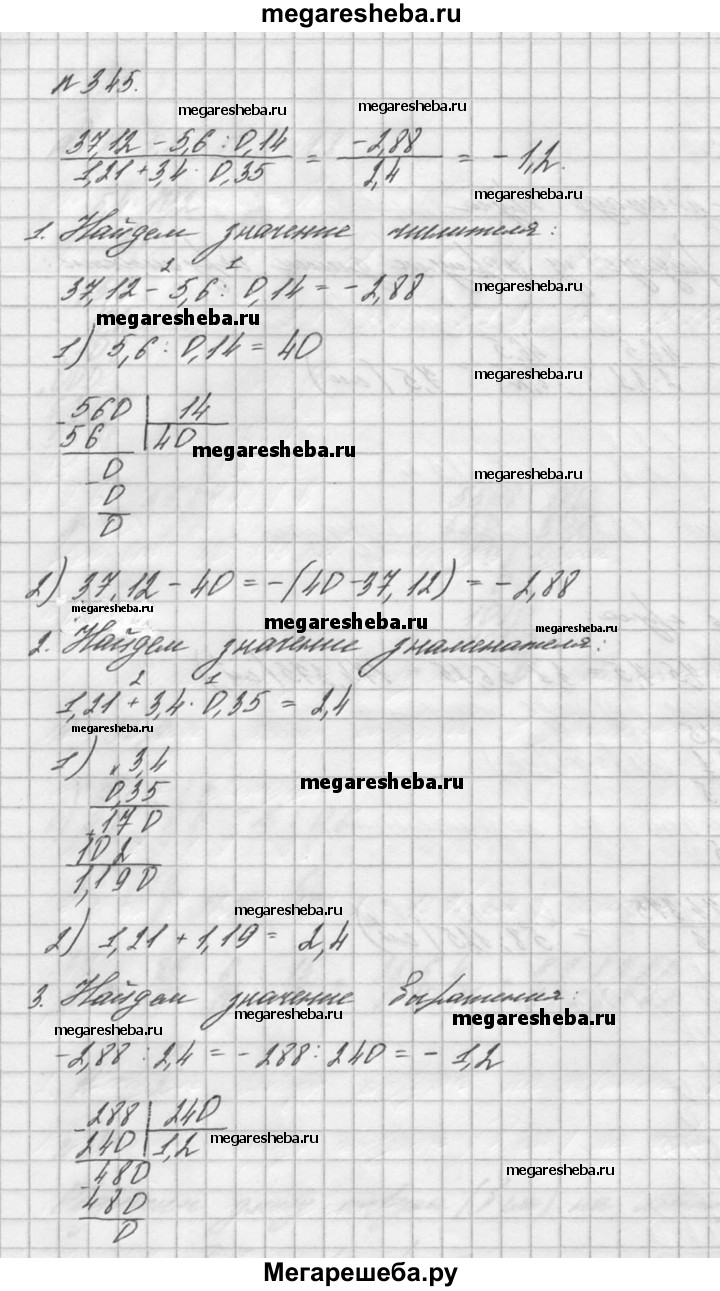 megaresheba.ru
№ 345.
megaresheba.ru megaresheba.ru
37,12 - 5,6 : 0,14 / 1,21 + 3,4 · 0,35 = -2,88 / 2,4 = -1,2.
megaresheba.ru
1. Найдем значение числителя:
2 1
37,12 - 5,6 : 0,14 = -2,88
megaresheba.ru
megaresheba.ru
1) 5,6 : 0,14 = 40
megaresheba.ru
-560 | 14
56 | 40
megaresheba.ru
-0
megaresheba.ru
0
0
2) 37,12 - 40 = -(40-37,12) = -2,88
megaresheba.ru
megaresheba.ru
megaresheba.ru
2. Найдем значение знаменателя:
2 1
1,21 + 3,4 · 0,35 = 2,4
megaresheba.ru
1) × 3,4
0,35
megaresheba.ru
+170
102
1,190
megaresheba.ru
2) 1,21 + 1,19 = 2,4
3. Найдем значение выражения:
megaresheba.ru
megaresheba.ru
megaresheba.ru
-2,88 : 2,4 = -288 : 240 = -1,2
-288 | 240
240 | 1,2
megaresheba.ru
-480
megaresheba.ru
480
0
Мегарешеба.ру